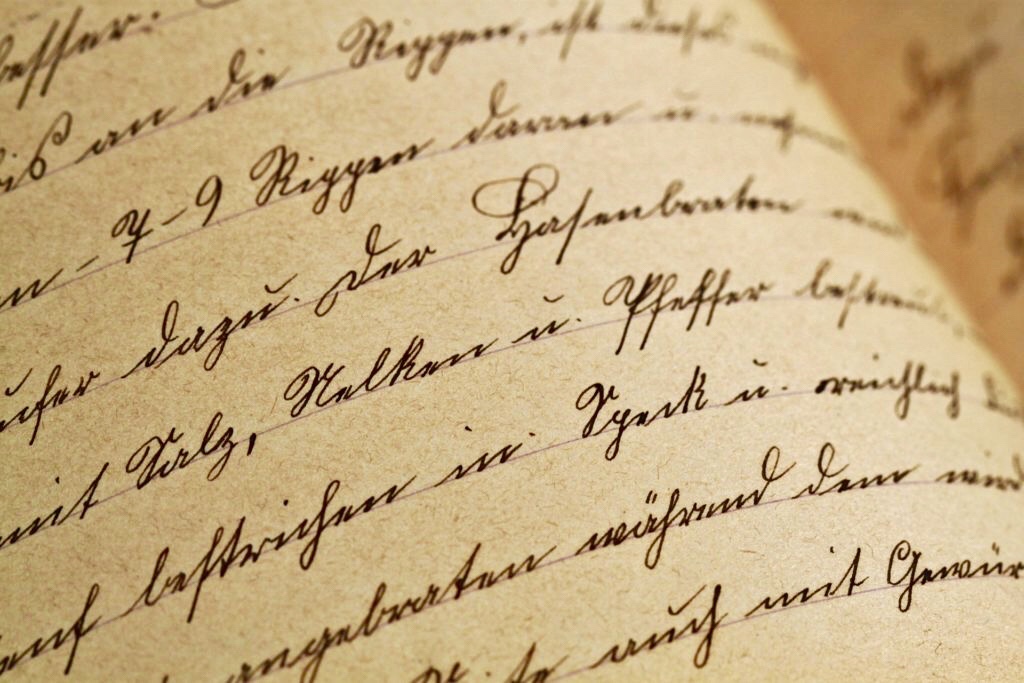 besser.
bis an die Rippen, ist dieses
7-9 Rippen daran u.
dazu. Der Hasenbraten
mit Salz, Nelken u. Pfeffer bestreut
bestrichen in Speck u. reichlich
angebraten während dem wird
auch mit Gewür